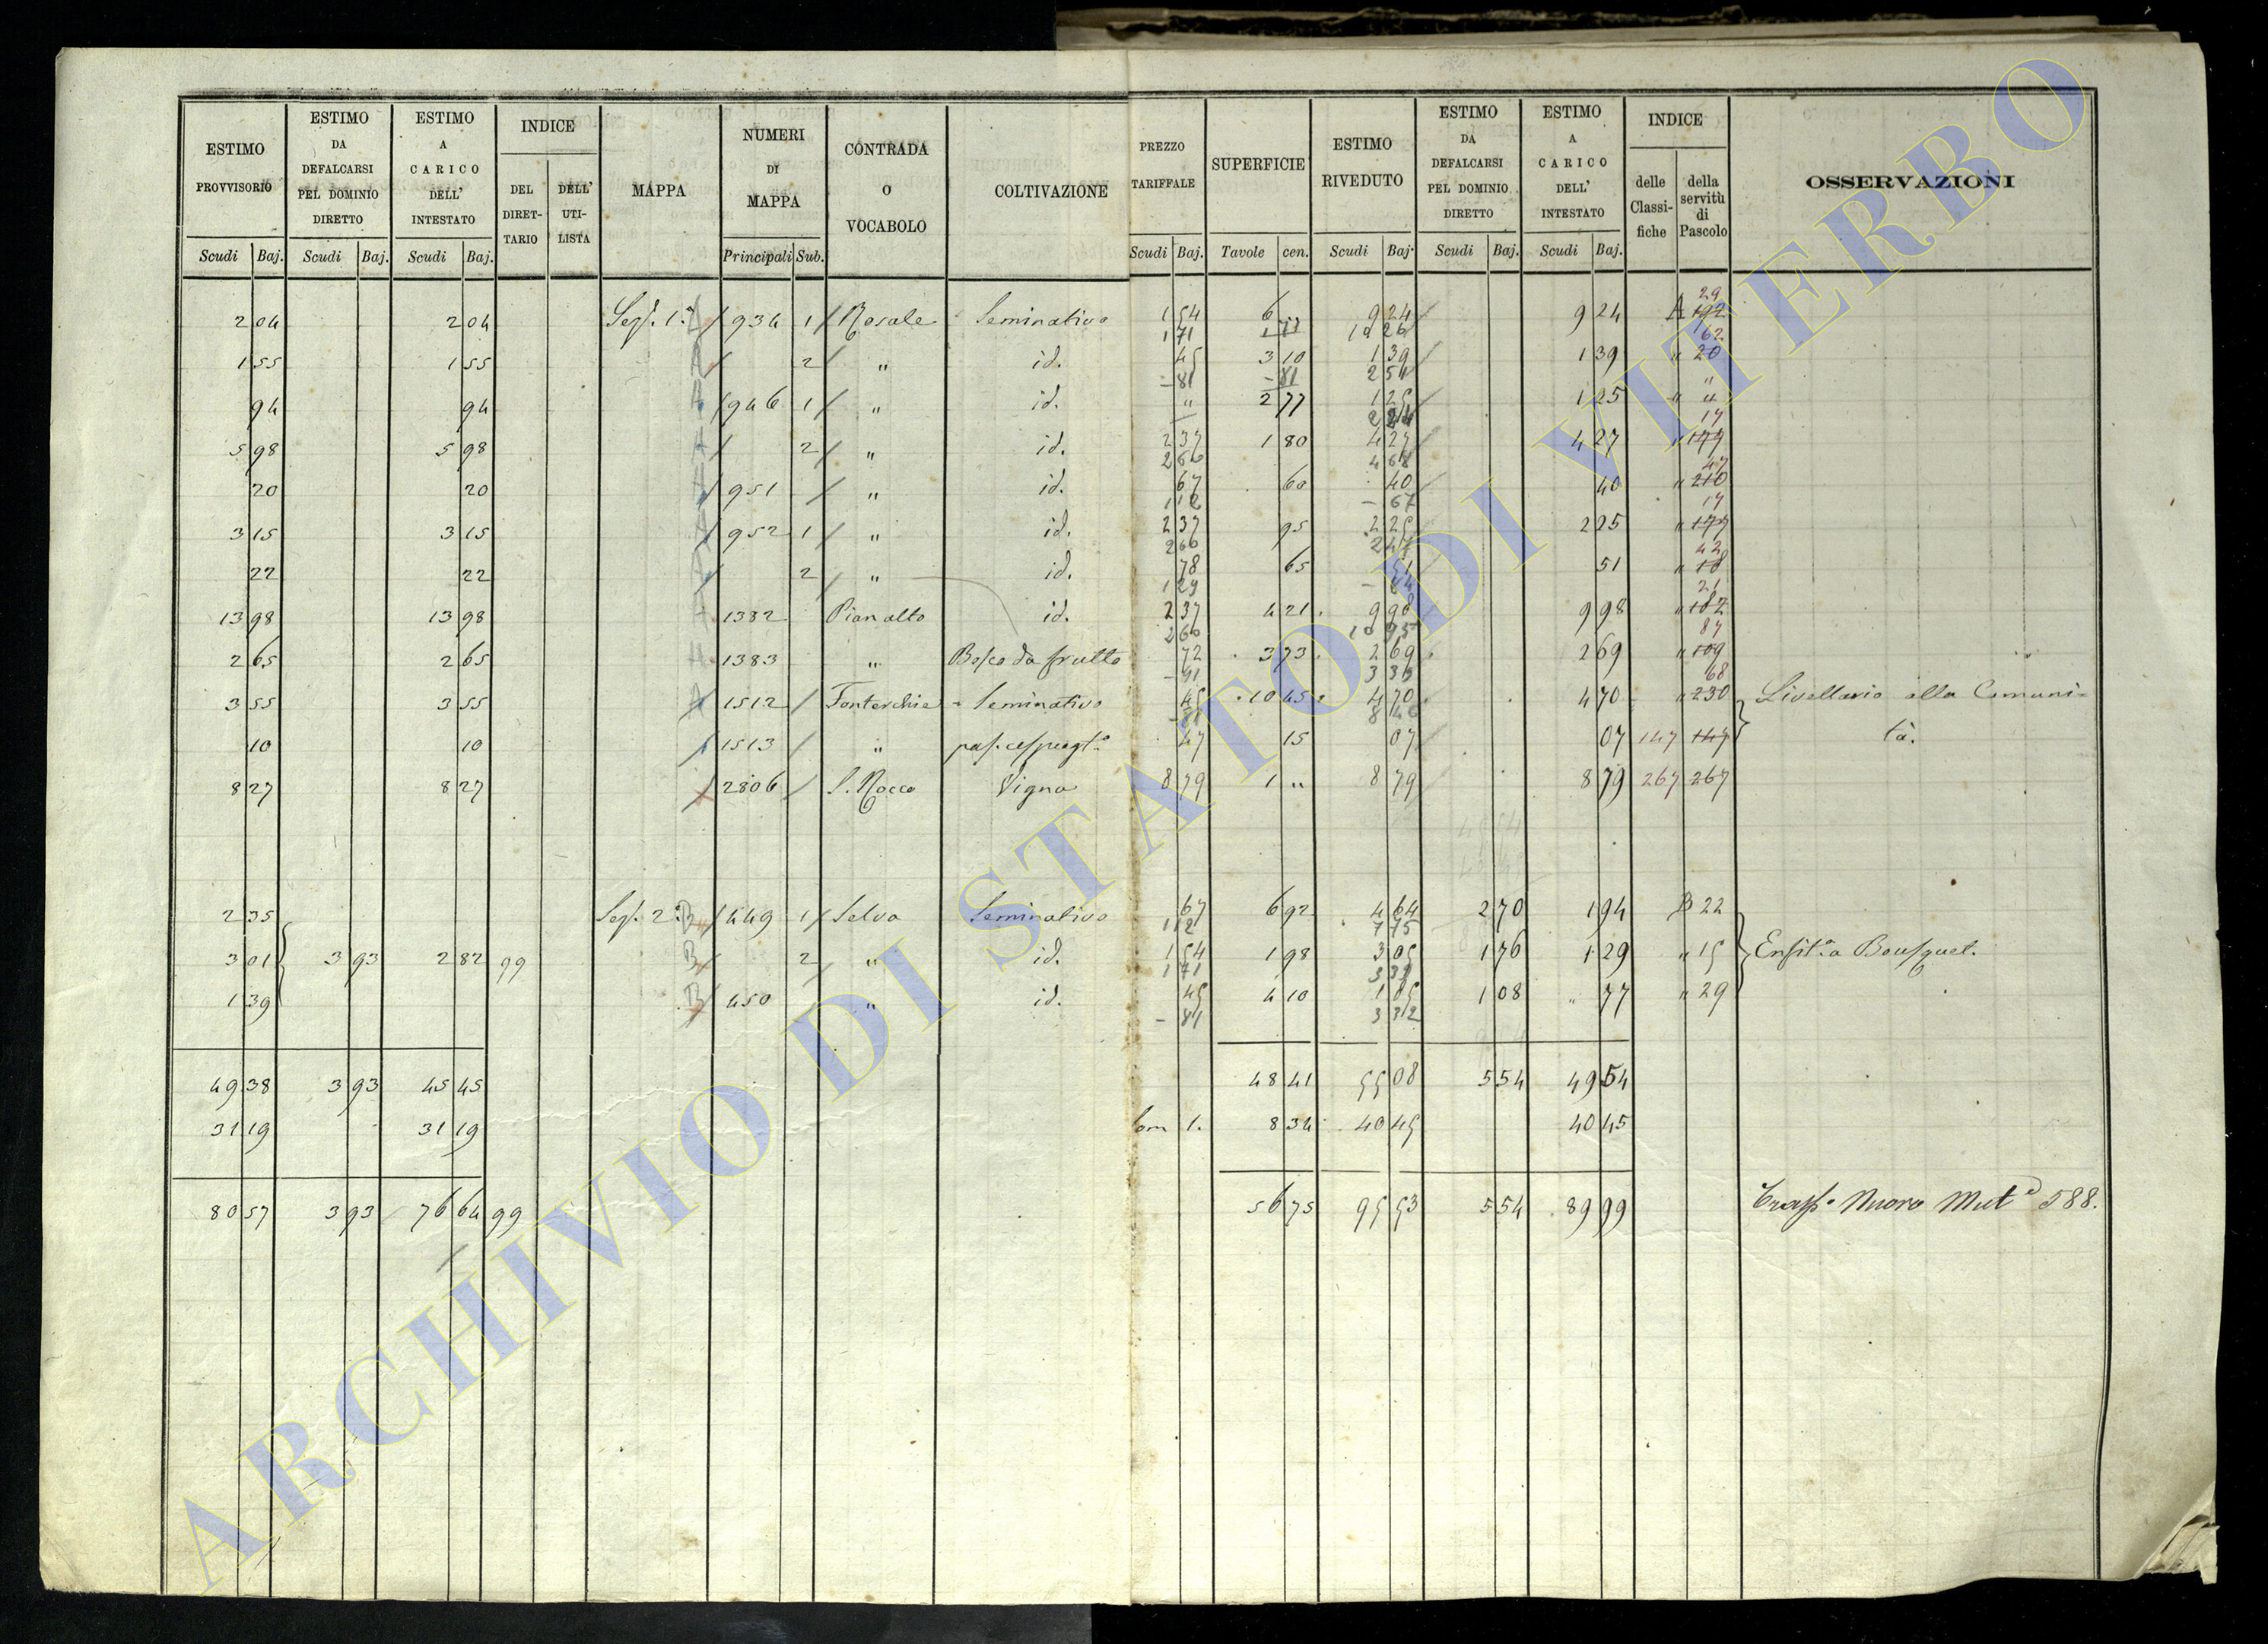 ESTIMO PROVVISORIO Scudi Baj. ESTIMO DA DEFALCARSI PEL DOMINIO DIRETTO Scudi Baj. ESTIMO A CARICO DELL' INTESTATO Scudi Baj. INDICE DEL DIRET-TARIO DELL' UTI-LISTA MAPPA NUMERI DI MAPPA Principali Sub. CONTRADA O VOCABOLO COLTIVAZIONE PREZZO TARIFFALE Scudi Baj. SUPERFICIE Tavole cen. ESTIMO RIVEDUTO Scudi Baj. ESTIMO DA DEFALCARSI PEL DOMINIO DIRETTO Scudi Baj. ESTIMO A CARICO DELL' INTESTATO Scudi Baj. INDICE delle Classi-fiche della servitù di Pascolo OSSERVAZIONI
2 04 2 04 Sez. 1.a 934 1 Rosale Seminativo 1 54 6 " 9 24 9 24 A 192 29
1 71 10 26
1 55 1 55 2 " id. 45 3 10 1 39 1 39 " 20 62
- 81 2 51
94 94 946 1 " id. " 2 77 1 25 1 25 " " "
2 24
5 98 5 98 2 " id. 2 37 1 80 4 27 4 27 " 177 17
2 60 4 68
20 20 951 " id. 67 60 40 40 " 210 47
1 12 - 67
3 15 3 15 952 1 " id. 2 37 95 2 25 2 25 " 177 17
2 60 2 47
22 22 2 " id. 78 65 51 51 " 18 42
1 29 - 84
13 98 13 98 1382 Pian alto id. 2 37 4 21 9 98 9 98 " 182 21
2 60 10 95
2 65 2 65 1383 " Bosco da frutto 72 3 73 2 69 2 69 " 109 87
- 91 3 39
3 55 3 55 1512 Fontecchie Seminativo 45 10 45 4 70 4 70 " 230 68 Livellario alla Comuni=
- 81 8 46
10 10 1513 " 47 15 07 07 147 147 tà.
8 27 8 27 2806 S. Rocco Vigna 8 79 1 " 8 79 8 79 267 267
2 35 Sez. 2.a B 449 1 Selva Seminativo 67 6 92 4 64 2 70 1 94 B 22
1 12 7 75
3 01 3 93 2 82 99 B 2 " id. 1 54 1 98 3 05 1 76 1 29 " 15 Enfit.a Bousquet.
1 71 3 39
1 39 B 450 " id. 45 4 10 1 85 1 08 " 77 " 29
- 81 3 32
49 38 3 93 45 45 48 41 55 08 5 54 49 54
31 19 31 19 1. 8 34 40 45 40 45
80 57 3 93 76 64 99 56 75 95 53 5 54 89 99 Nuovo 588.
ARCHIVIO DI STATO DI VITERBO